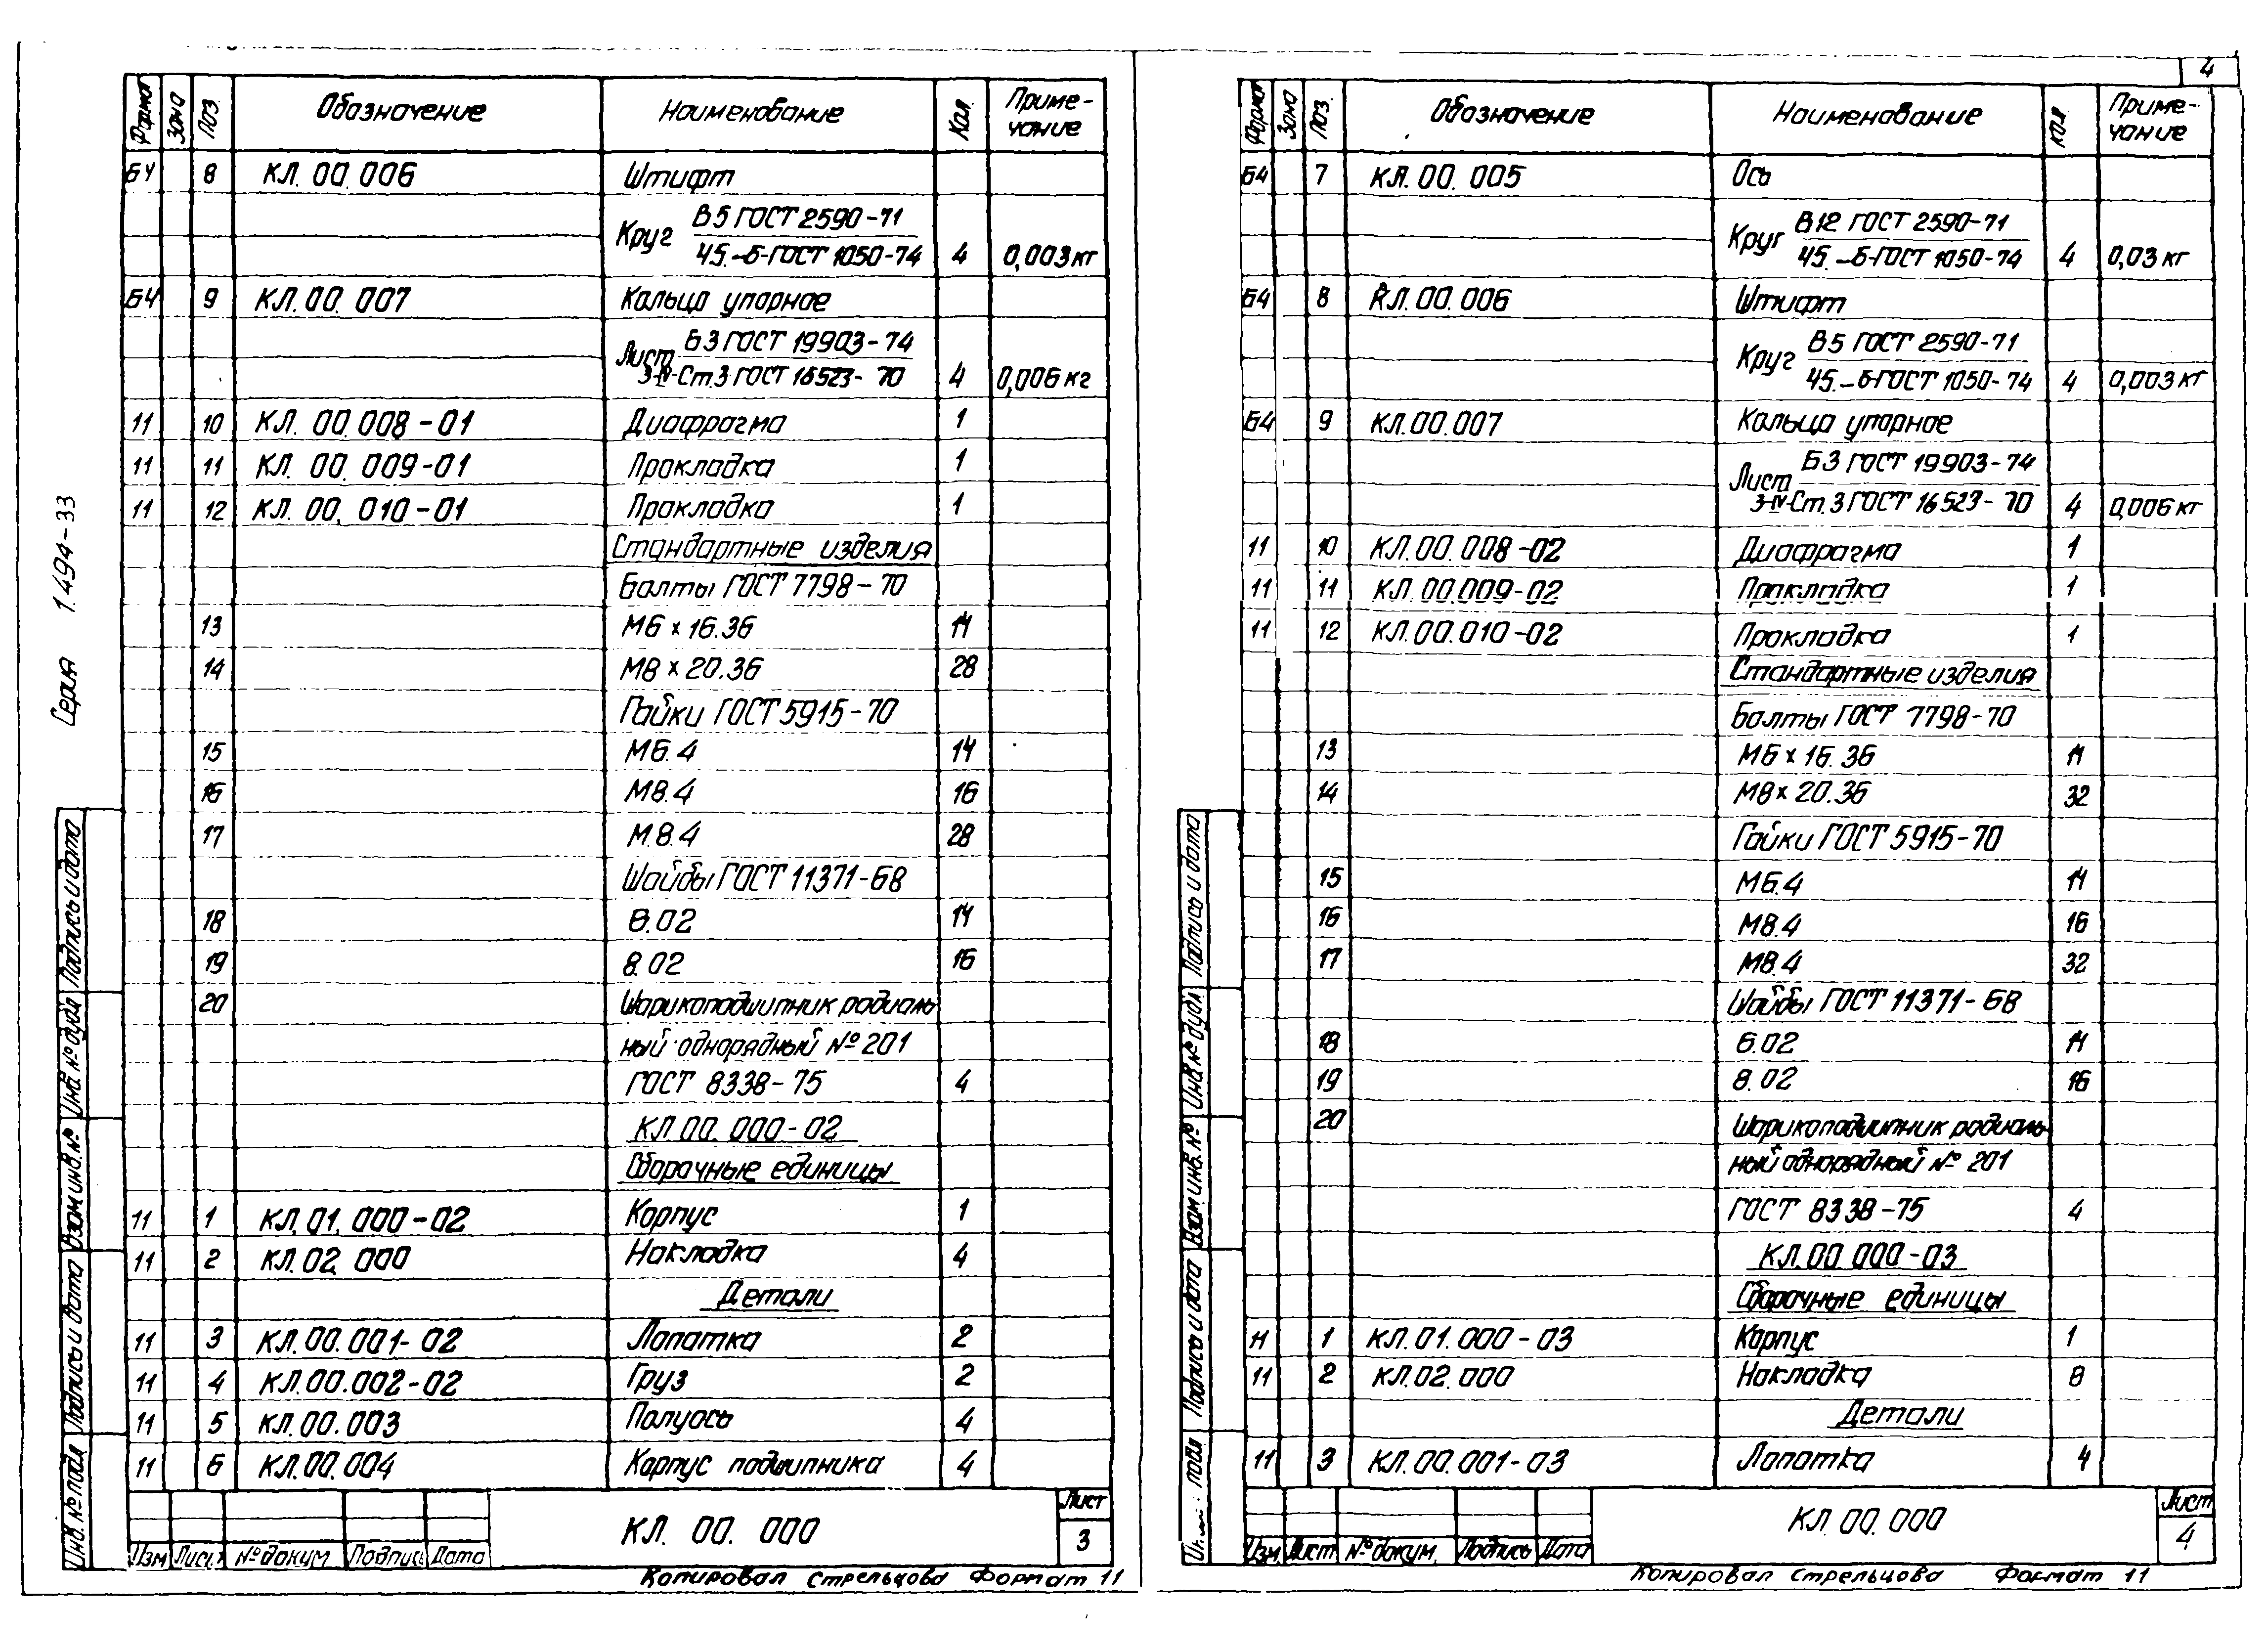 Серия 1.494-33
Формат Зона Поз. Обозначение Наименование Кол. Приме-
чание
БЧ 8 КЛ.00.006 Штифт
В5 ГОСТ 2590-71
Круг
45.-Б-ГОСТ 1050-74 4 0,003кг
БЧ 9 КЛ.00.007 Кольцо упорное
Б3 ГОСТ 19903-74
Лист
3-IV-Ст.3 ГОСТ 16523-70 4 0,006кг
11 10 КЛ.00.008-01 Диафрагма 1
11 11 КЛ.00.009-01 Прокладка 1
11 12 КЛ.00.010-01 Прокладка 1
Стандартные изделия
Болты ГОСТ 7798-70
13 М6×16.36 14
14 М8×20.36 28
Гайки ГОСТ 5915-70
15 М6.4 14
16 М8.4 16
17 М.8.4 28
Шайбы ГОСТ 11371-68
18 6.02 14
19 8.02 16
20 Шарикоподшипник радиаль
ный однорядный №201
ГОСТ 8338-75 4
КЛ.00.000-02
Сборочные единицы
11 1 КЛ.01.000-02 Корпус 1
11 2 КЛ.02.000 Накладка 4
Детали
11 3 КЛ.00.001-02 Лопатка 2
11 4 КЛ.00.002-02 Груз 2
11 5 КЛ.00.003 Полуось 4
11 6 КЛ.00.004 Корпус подшипника 4
КЛ. 00. 000
Лист
3
Изм Лист №докум Подпись Дата
Копировал Стрельцова Формат 11
Инв.№подл Подпись и дата Взам.инв.№ Инв.№дубл Подпись и дата
4
Формат Зона Поз. Обозначение Наименование Кол Приме-
чание
Б4 7 КЛ.00.005 Ось
В12 ГОСТ 2590-71
Круг
45.-Б-ГОСТ 1050-74 4 0,03кг
Б4 8 КЛ.00.006 Штифт
В5 ГОСТ 2590-71
Круг
45.-Б-ГОСТ 1050-74 4 0,003кг
Б4 9 КЛ.00.007 Кольцо упорное
Б3 ГОСТ 19903-74
Лист
3-IV-Ст.3 ГОСТ 16523-70 4 0,006кг
11 10 КЛ.00.008-02 Диафрагма 1
11 11 КЛ.00.009-02 Прокладка 1
11 12 КЛ.00.010-02 Прокладка 1
Стандартные изделия
Болты ГОСТ 7798-70
13 М6×16.36 14
14 М8×20.36 32
Гайки ГОСТ 5915-70
15 М6.4 14
16 М8.4 16
17 М8.4 32
Шайбы ГОСТ 11371-68
18 6.02 14
19 8.02 16
20 Шарикоподшипник радиаль
ный однорядный № 201
ГОСТ 8338-75 4
КЛ.00.000-03
Сборочные единицы
11 1 КЛ.01.000-03 Корпус 1
11 2 КЛ.02.000 Накладка 8
Детали
11 3 КЛ.00.001-03 Лопатка 4
КЛ.00.000
Лист
4
Изм. Лист №докум. Подпись Дата
Копировал Стрельцова Формат 11
подл Подпись и дата Взам.инв.№ Инв.№дубл Подпись и дата